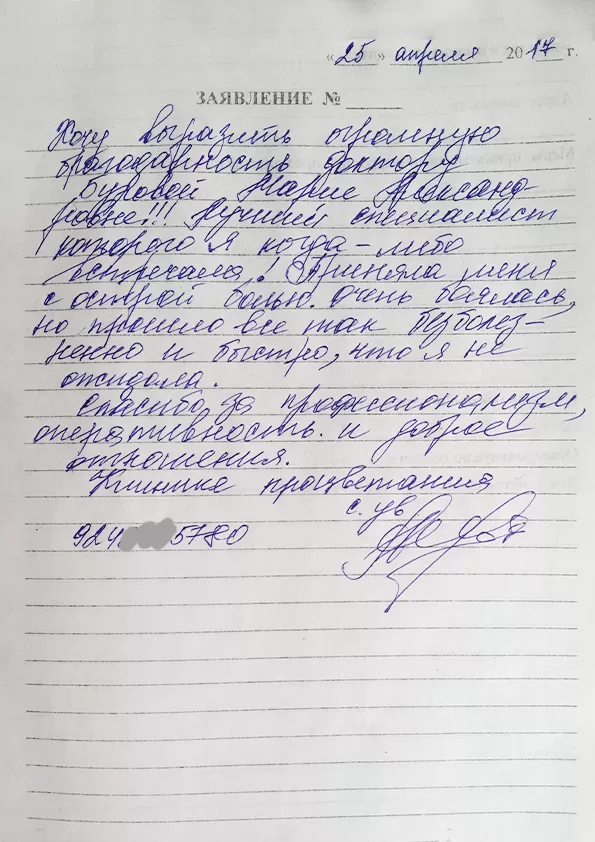 «25» апреля 2017 г.
ЗАЯВЛЕНИЕ №
Хочу выразить огромную
благодарность доктору
Буровой Марие Александ-
ровне!!! Лучший специалист
которого я когда-либо
встречала! Приняла меня
с острой болью. Очень боялась,
но прошло все так безболез-
ненно и быстро, что я не
ожидала.
Спасибо за профессионализм,
оперативность и доброе
отношения.
Клинике процветания
с. ув
924 5780